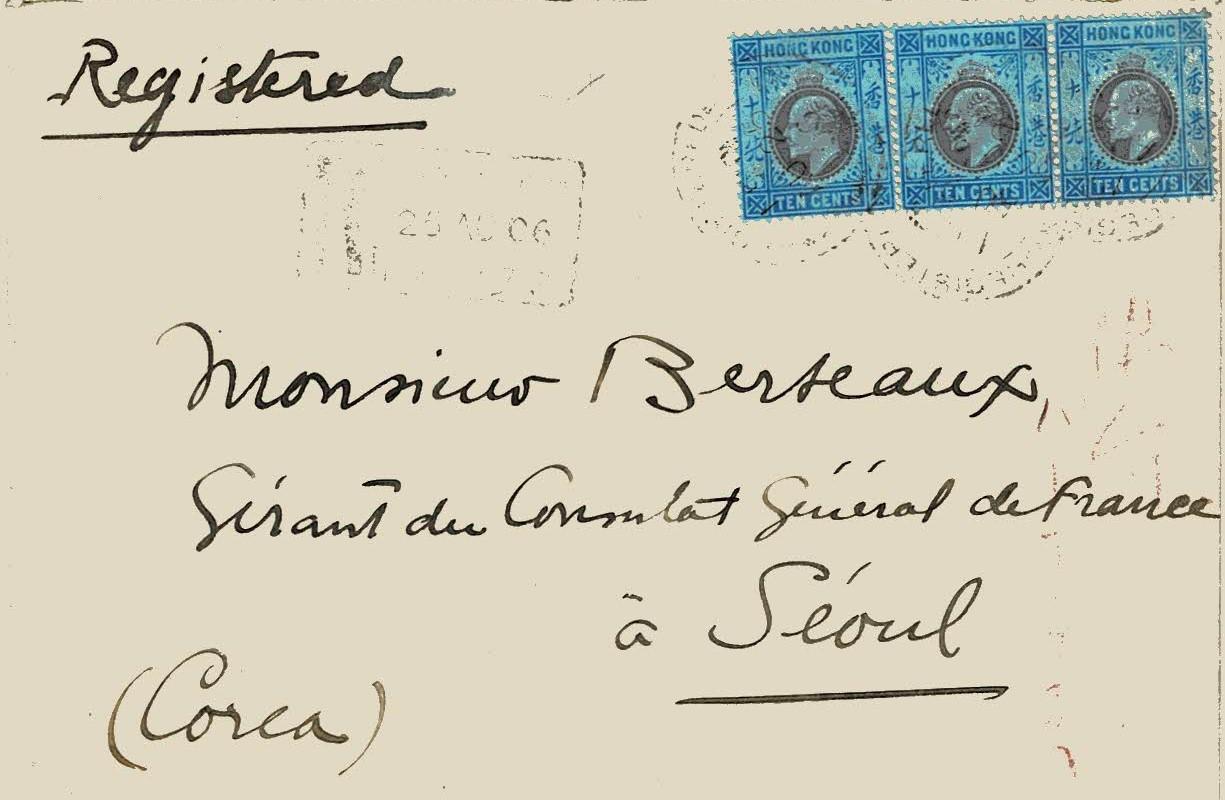 Registered
HONG KONG HONG KONG HONG KONG
香港 香港 香港
TEN CENTS TEN CENTS TEN CENTS
Monsieur Berteaux
Gérant du Consulat Général de France
à Séoul
(Corea)